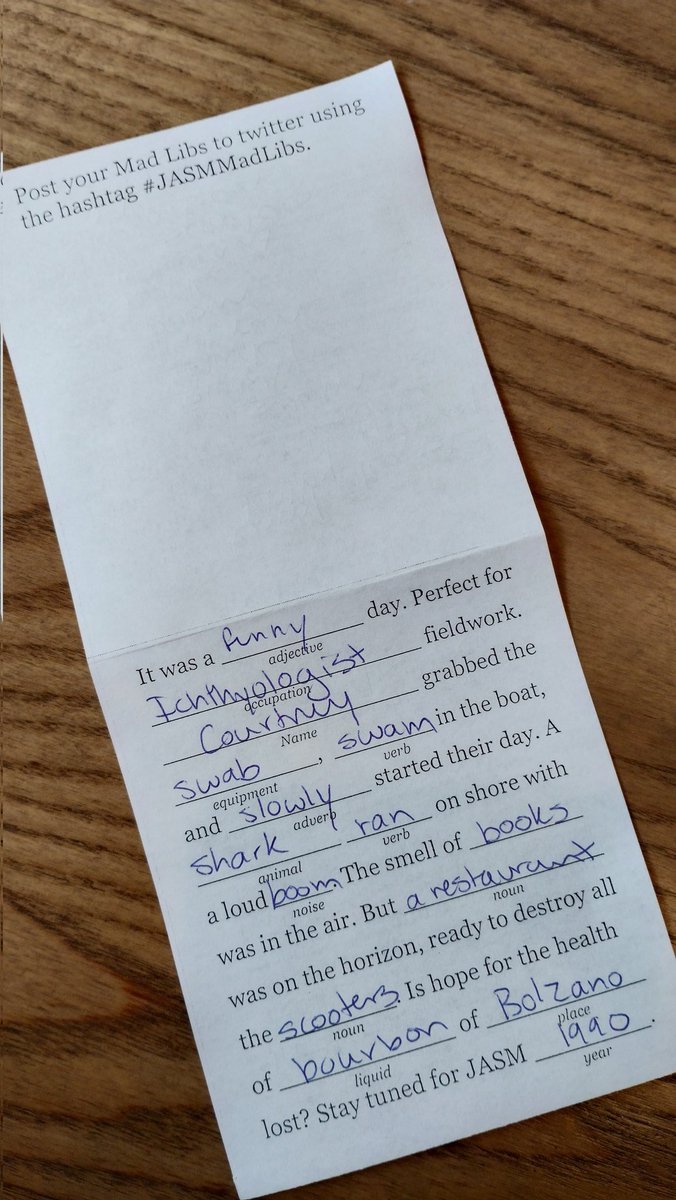 Post your Mad Libs to twitter using
the hashtag #JASMMadLibs.
It was a funny day. Perfect for
adjective
Ichthyologist fieldwork.
occupation
Courtney grabbed the
Name
swab, swam in the boat,
equipment verb
and slowly started their day. A
adverb
shark ran on shore with
animal verb
a loud boom. The smell of books
noise
was in the air. But a restaurant
noun
was on the horizon, ready to destroy all
the scooters. Is hope for the health
noun
of bourbon of Bolzano
liquid place
lost? Stay tuned for JASM 1990.
year